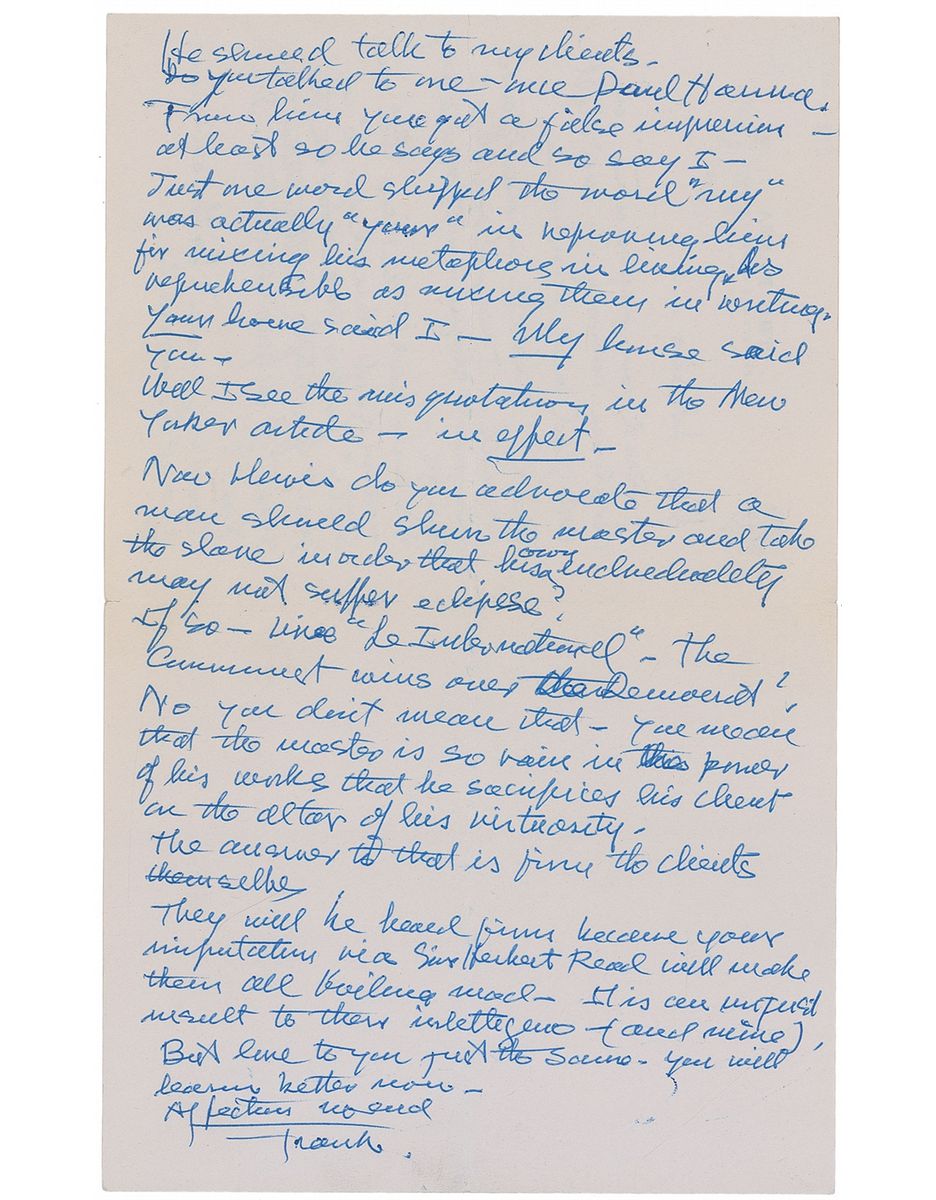 He should talk to my clients.
So you talked to one – one Paul Hanna.
From him you got a false impression –
at least so he says and so say I –
Just one word slipped the word "my"
was actually "your" in reproving him
for mixing his metaphors in living, as
reprehensible as mixing them in writing.
Your house said I – My house said
you –
Well I see the misquotation in the New
Yorker article – in effect –
Now Lewis do you advocate that a
man should shun the master and take
the slave in order that his own individuality
may not suffer eclipse?
If so – "Le International" – The
Communist wins over the Democrat?
No you don't mean that – you mean
that the master is so vain in the power
of his works that he sacrifices his client
on the altar of his virtuosity.
The answer to that is from the clients
themselves
They will be heard from because your
imputation via Sir Herbert Read will make
them all boiling mad – It is an unjust
insult to their intelligence – (and mine),
But love to you just the same – you will
learn better now –
Affection no end
Frank.